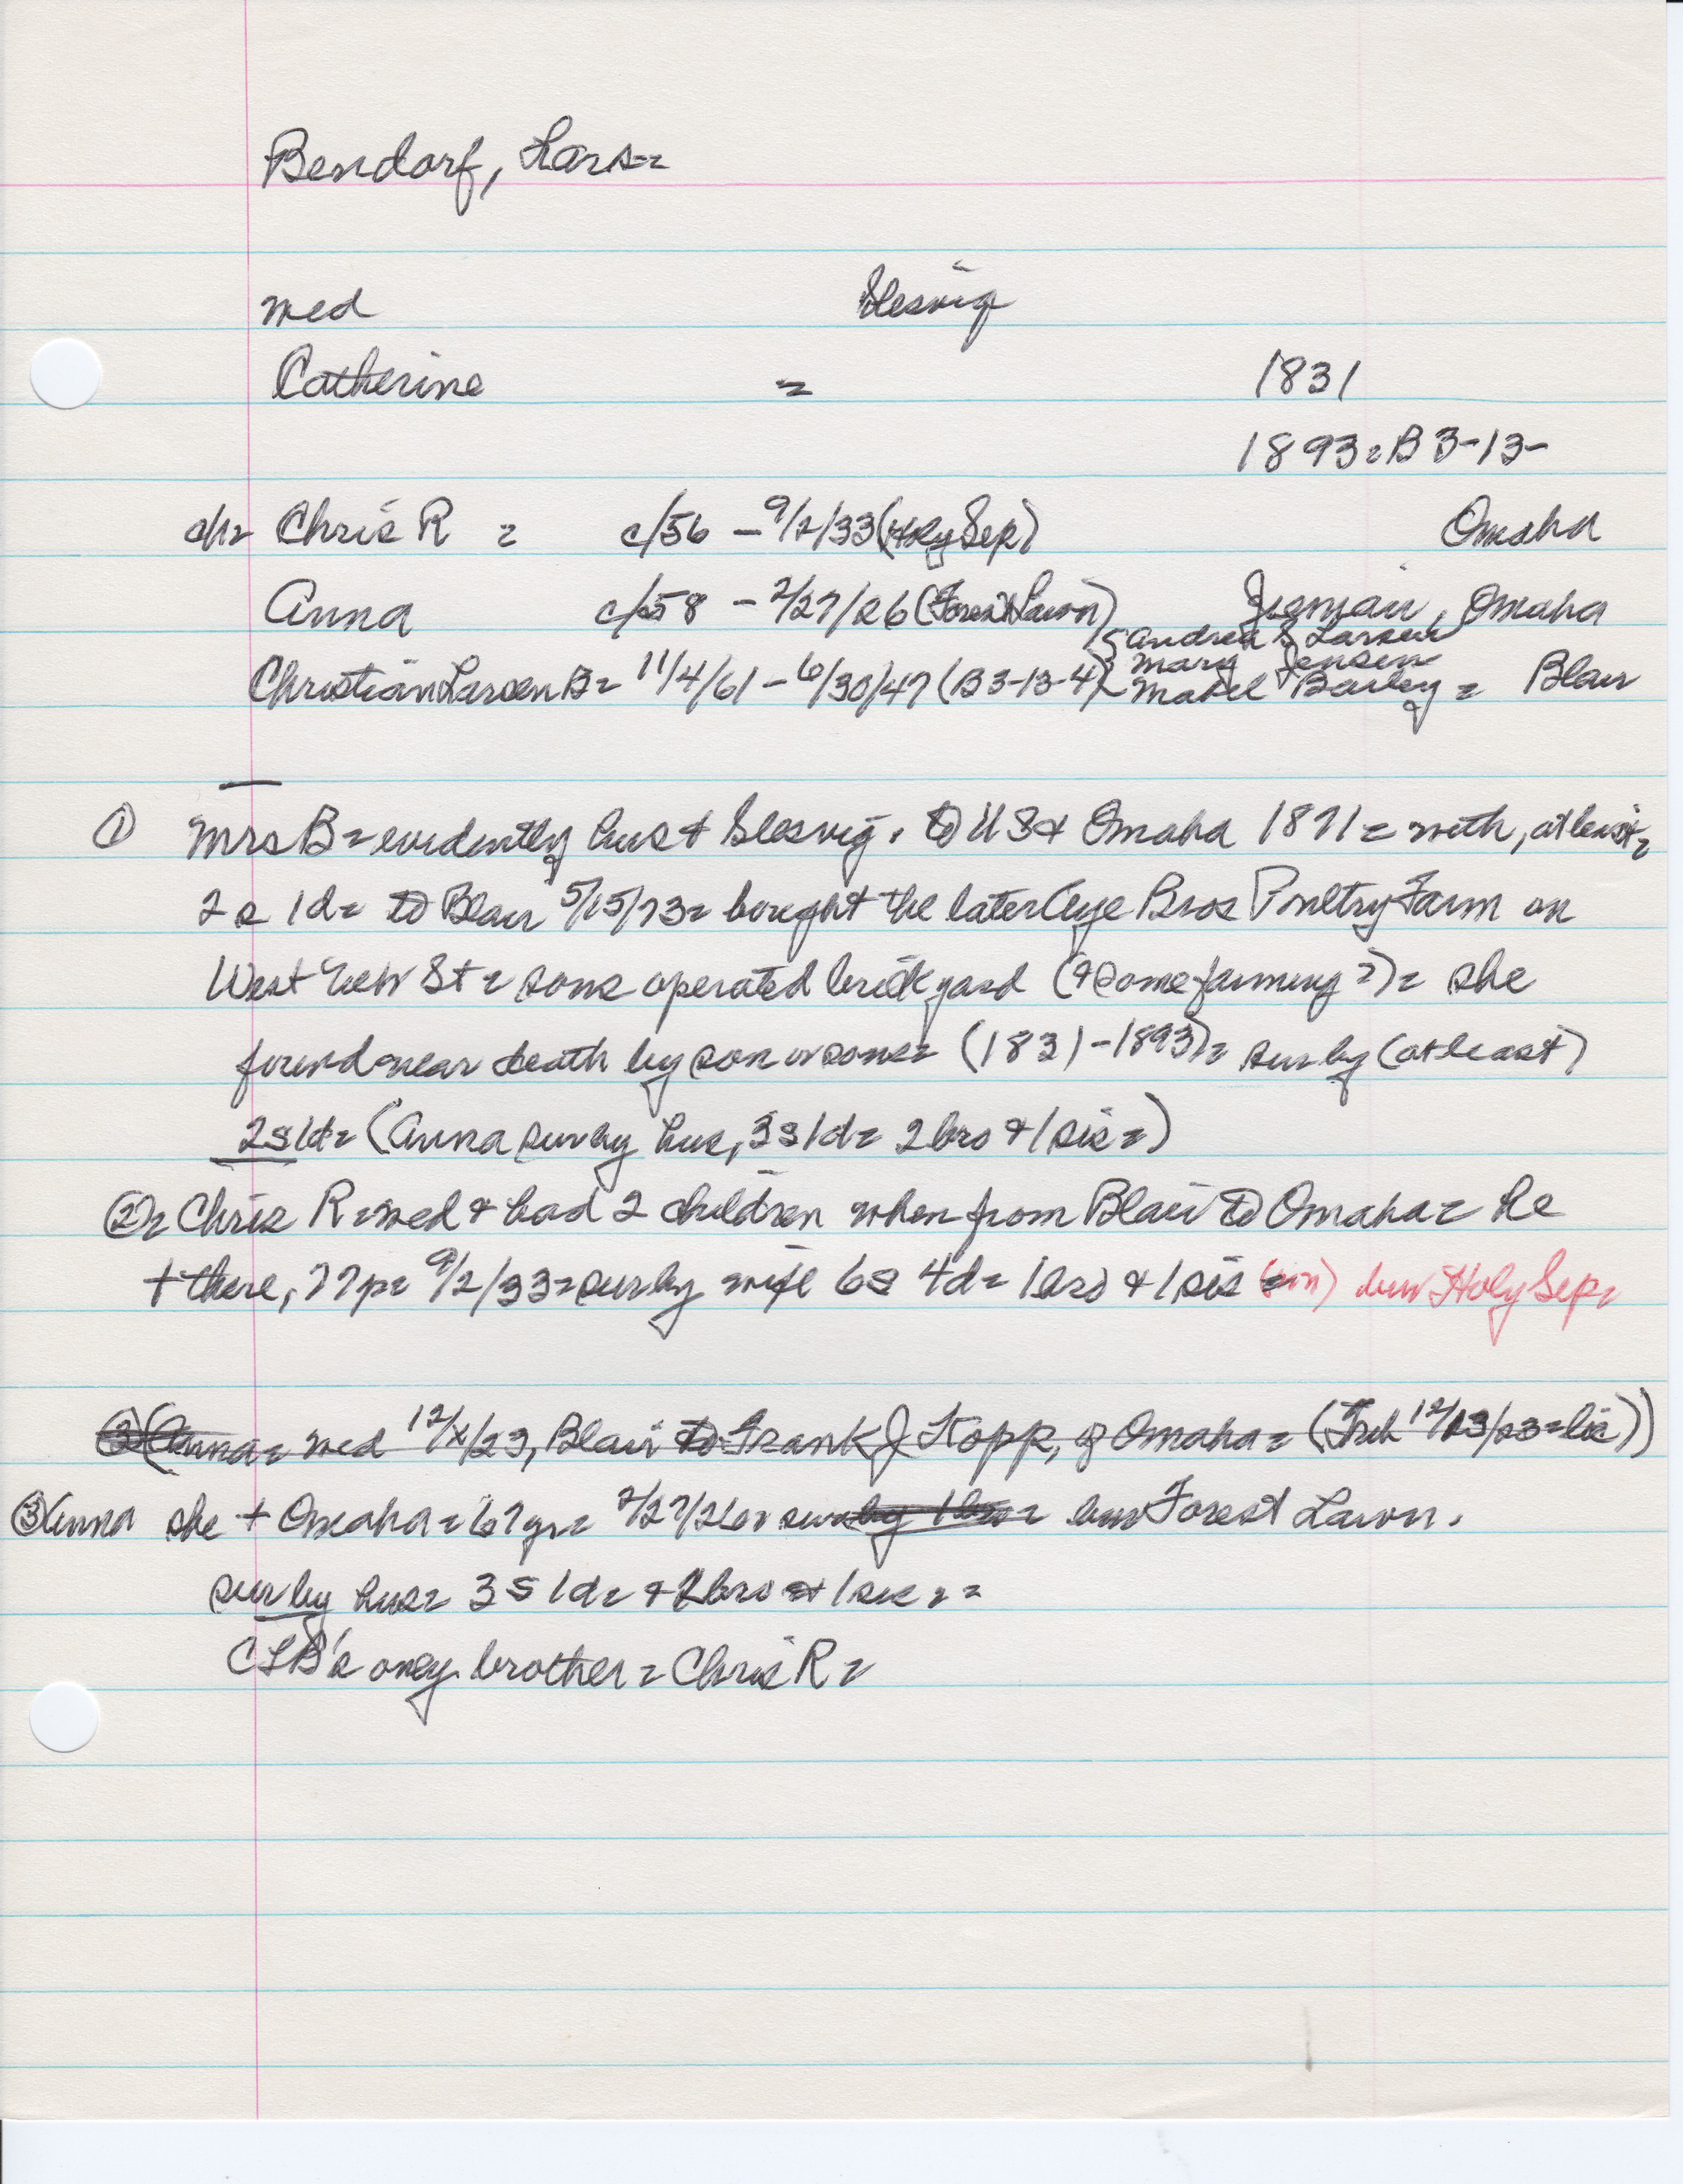 Bendorf, Lars=
med Slesvig
Catherine = 1831
1893=B3-13-
ch= Chris R = c/56 - 9/2/33 (Holy Sep) Omaha
Anna c/58 - 2/27/26 (Forest Lawn) , Omaha
Andrea S Larsen
Mary Jensen
Christian Larsen B= 11/4/61 - 6/30/47 (B3-13-4) Mabel Bailey = Blair
① Mrs B= evidently hus + Slesvig. to US & Omaha 1871= with, at least=
2s 1d= to Blair 5/15/73= bought the later Aye Bros Poultry Farm on
West View St= sons operated brick yard (& some farming?)= she
found near death by son or sons= (1831-1893)= sur by (at least)
2s1d= (Anna sur by hus, 3s1d= 2bro & 1sis=)
②= Chris R=med & had 2 children when from Blair to Omaha= he
+ there, 77p= 9/2/33=sur by wife 6s 4d= 1bro & 1sis bur Holy Sep=
③(Anna= med 12/x/23, Blair to Frank J Kopp, of Omaha= (Trib 12/13/23=lic))
③Anna she + Omaha=67yr= 2/27/26= sur by 1bro= bur Forest Lawn.
sur by hus= 3s 1d= & 2bro & 1sis ==
CLB's only brother=Chris R=